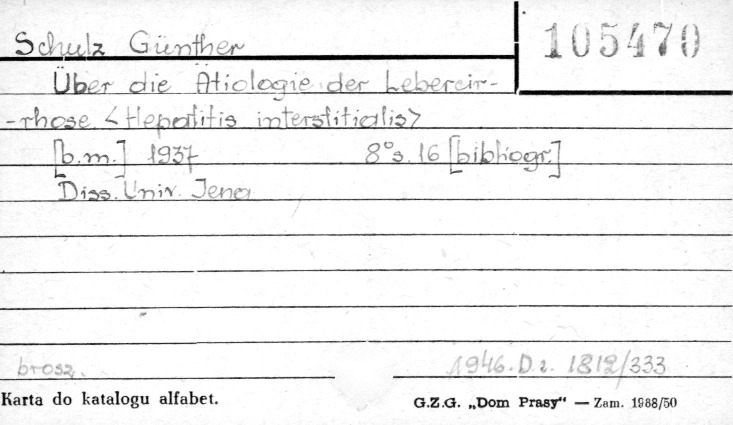 Schulz Günther
105470
Über die Ätiologie der Lebercir-
-rhose <Hepatitis interstitialis>
[b.m.] 1937 8° s. 16 [bibliogr.]
Diss. Univ. Jena
brosz. 1946. D.z. 1812/333
Karta do katalogu alfabet. G.Z.G. „Dom Prasy“ — Zam. 1988/50